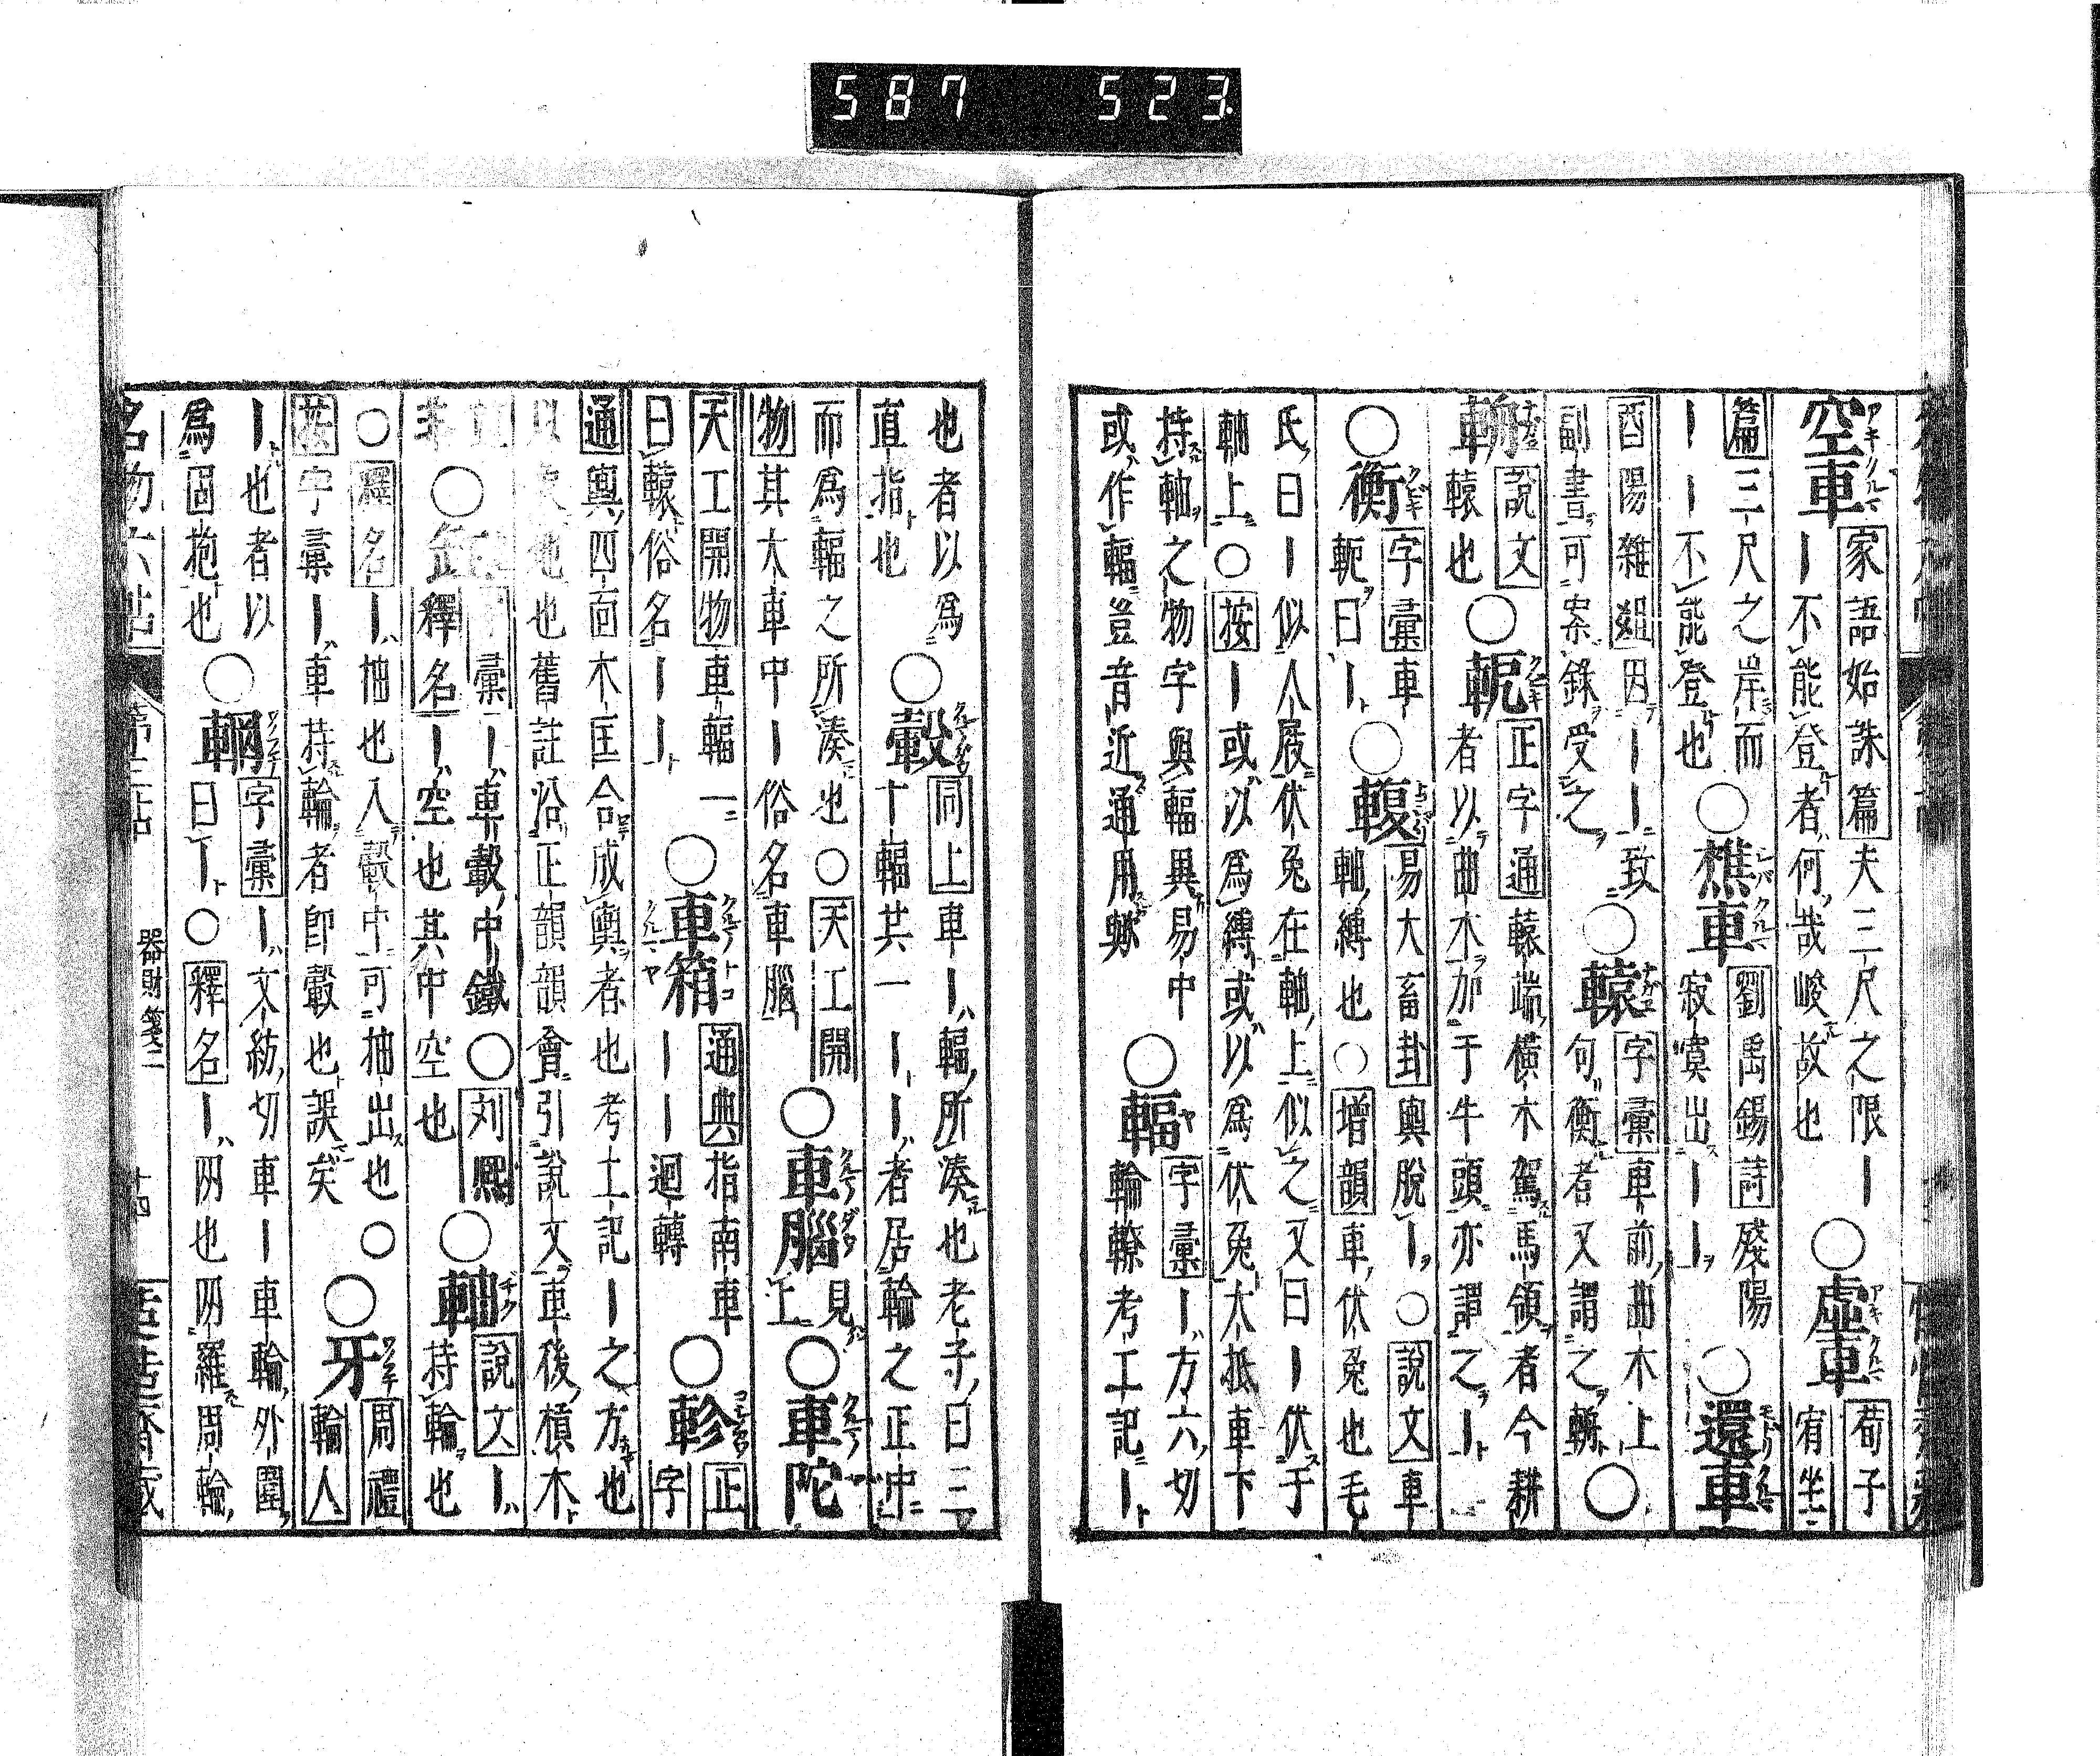 587 523
空車 家語始誅篇夫三尺之限丨
丨不能登者何哉峻故也
○虛車 荀子
宥坐
篇三尺之岸而
丨丨不能登也
○樵車 劉禹錫詩殘陽
寂寞出丨丨
○還車
酉陽雜俎因丨丨致
副書可案錄受之
○轅 字彙車前曲木上
句衡者又謂之輈
○
輈 說文
轅也
○軶 正字通轅端橫木駕馬領者今耕
者以曲木加于牛頭亦謂之丨
○衡 字彙車
軛曰丨
○輹 易大畜卦輿脫丨○說文車
軸縛也○增韻車伏兔也毛
氏曰丨似人屐伏兔在軸上似之又曰丨伏于
軸上○按丨或以爲縛或以爲伏兔大抵車下
持軸之物字與輻異易中
或作輻豈音近通用歟
○輻 字彙丨方六切
輪轑考工記丨
也者以爲
直指也
○轂 同上車丨輻所湊也老子曰三
十輻共一丨丨者居輪之正中
而爲輻之所湊也○天工開
物其大車中丨俗名車腦
○車腦 見
上
○車陀
天工開物車輻一
曰轅俗名丨丨
○車箱 通典指南車
丨丨迴轉
○軫 正
字
通輿四面木匡合成輿者也考工記丨之方也
以象地也舊註沿正韻韻會引說文車後橫木
非
○釭 彙丨車轂中鐵○刘熙
釋名丨空也其中空也
○軸 說文丨
持輪也
○釋名丨抽也入轂中可抽出也○
按字彙丨車持輪者卽轂也誤矣
○牙 周禮
輪人
丨也者以
爲固抱也
○輞 字彙丨文紡切車丨車輪外圍
曰丨○釋名丨罔也罔羅周輪
名物六帖 第三帖 器財箋二 十四